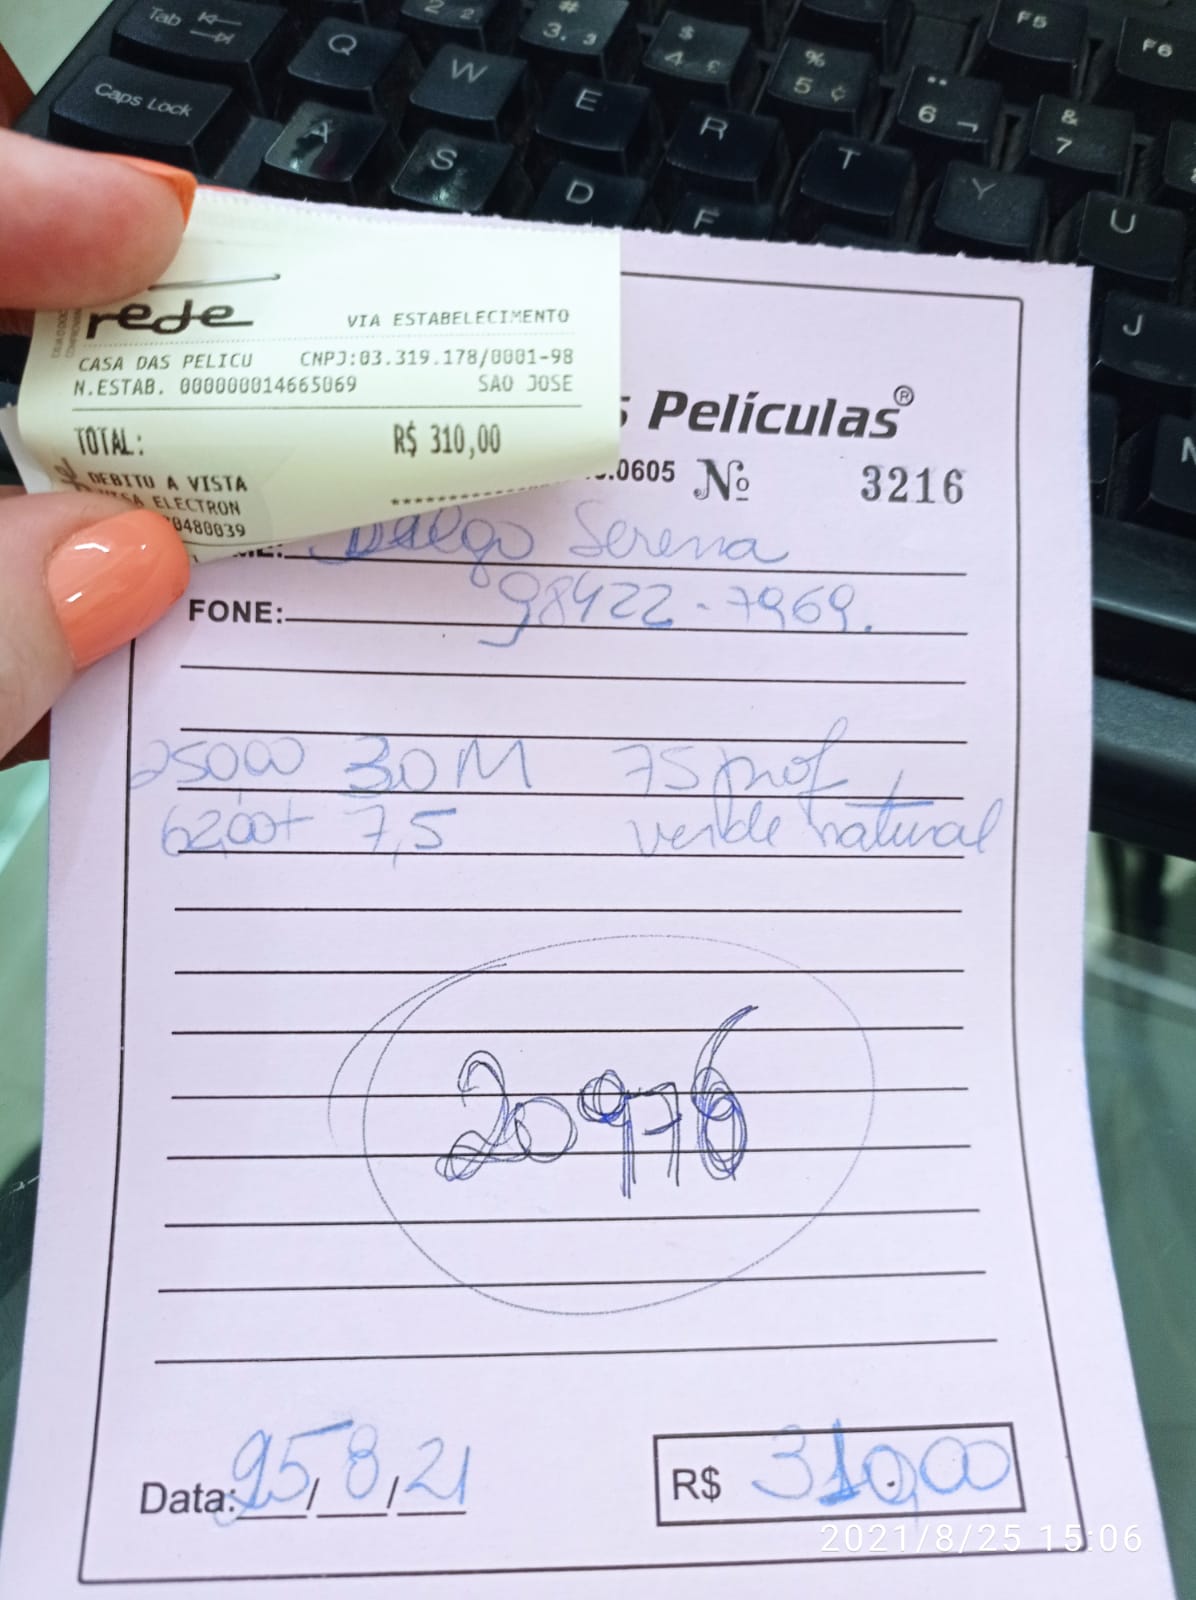 Tab
Q
2 2
#
3. 3
$
4 £
%
5 ¢
6 ¬
&
7
F5
F6
Caps Lock
A
W
E
R
T
Y
U
S
D
F
J
N
rede
VIA ESTABELECIMENTO
CASA DAS PELICU CNPJ:03.319.178/0001-98
N.ESTAB. 000000014665069 SAO JOSE
TOTAL: R$ 310,00
DEBITO A VISTA
VISA ELECTRON
0480039
s Películas®
.0605 Nº 3216
Serena
FONE: 98422-7969.
250,00 30M 75 prof
62,00+ 7,5 verde natural
20976
Data: 25/8/21
R$ 310,00
2021/8/25 15:06